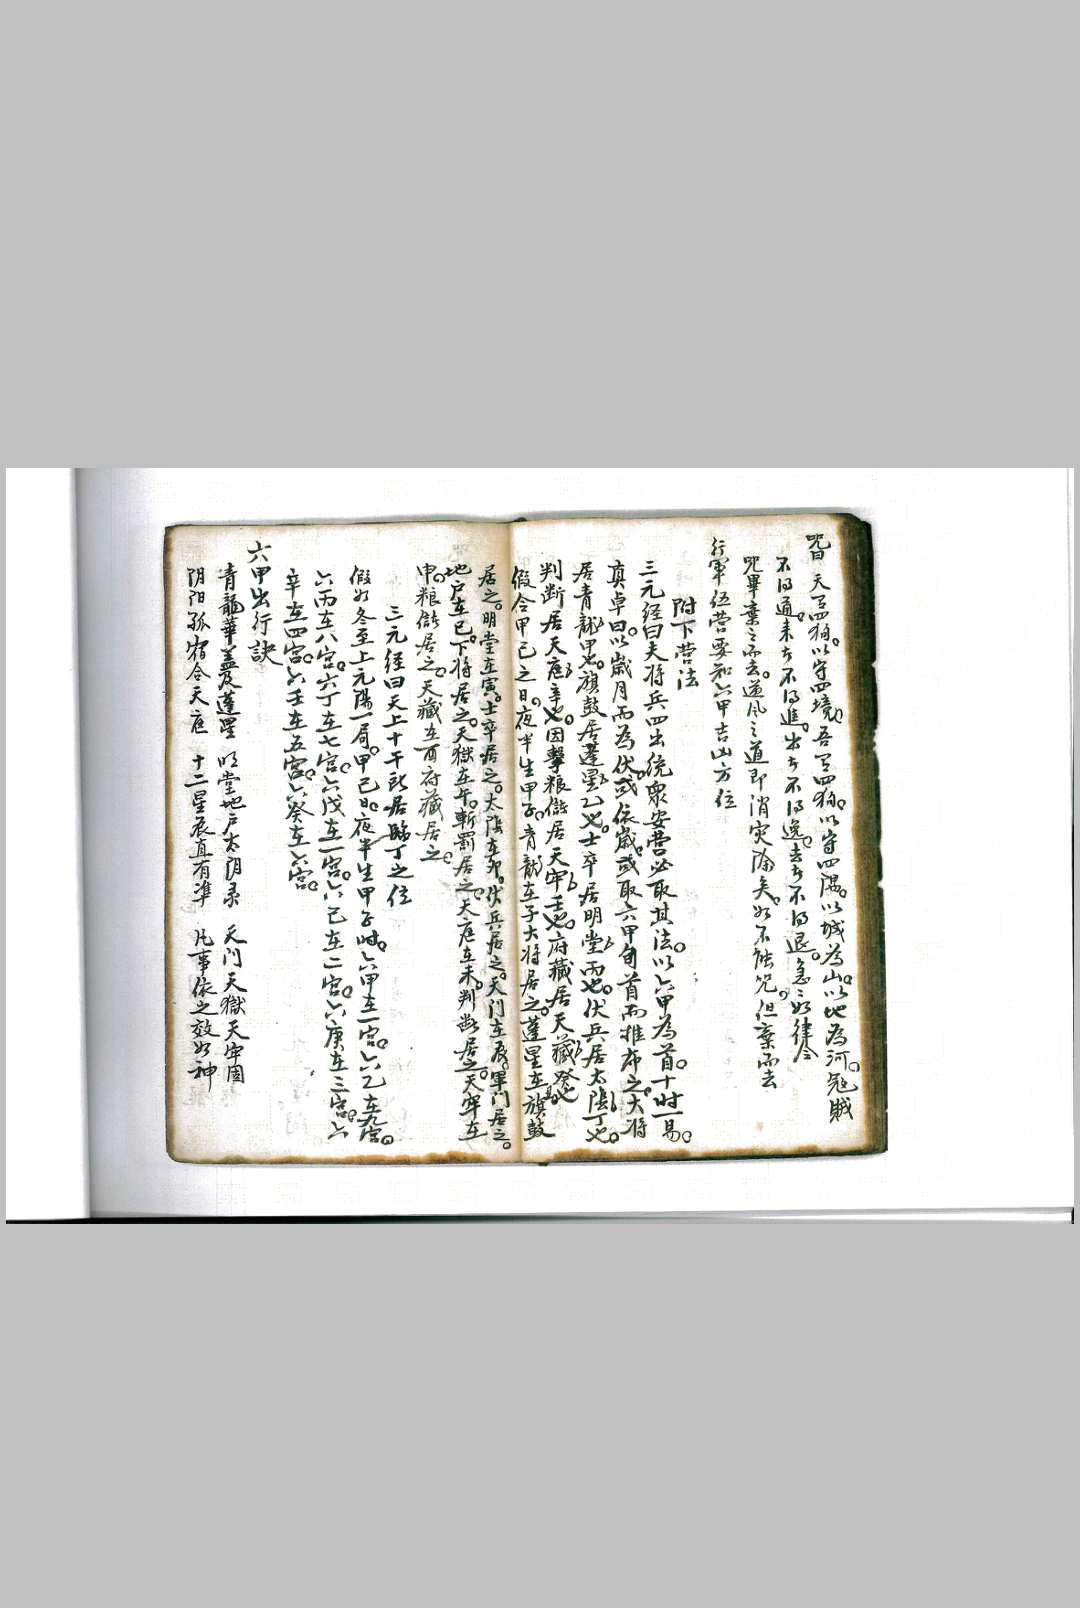 咒曰 天有四狗。以守四境。吾有四狗。以守四隅。以城為山。以地為河。冠賊
不得通。来者不得進。出者不得逸。去者不得退。急々如律令
咒畢棄之而去。道凡之道即消灾除矣。如不能咒。但棄而去
行軍伍营要知六甲吉凶方位
附下营法
三元经曰夫将兵四出統衆安营必取其法。以六甲為首。十时一易。
真卓曰。以歲月而為伏。或依歲。或取六甲旬首而推布之。大将
居青龍甲也。旗鼓居蓬星乙也。士卒居明堂丙也。伏兵居太陰丁也。
判断居天庭辛也。因擊粮儲居天牢壬也。府藏居天藏癸也
假令甲己之日。夜半生甲子。青龍在子大将居之。蓬星在丑旗鼓
居之。明堂在寅。士卒居之。太陰在卯。伏兵居之。天门在辰。軍门居之。
地户在巳。下将居之。天獄在午。斬罰居之。天庭在未。判断居之。天牢在
申。粮儲居之。天藏在酉府藏居之。
三元经曰天上十干所居臨丁之位
假如冬至上元陽一局。甲己日。夜半生甲子时。六甲在一宫。六乙在九宫。
六丙在八宫。六丁在七宫。六戊在一宫。六己在二宫。六庚在三宫。六
辛在四宫。六壬在五宫。六癸在六宫。
六甲出行訣
青龍華盖及蓬星 明堂地户太阴录 天门天獄天牢囯
阴阳孤宿令天庭 十二星辰直有準 凡事依之效如神